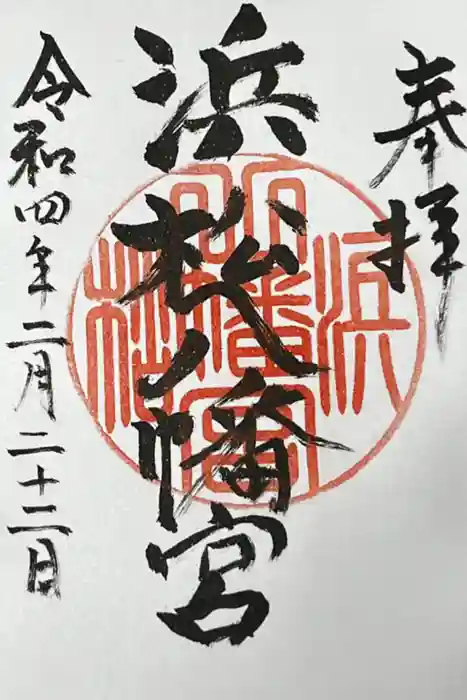 奉拝
浜松八幡宮
浜松
八幡宮
令和四年二月二十二日